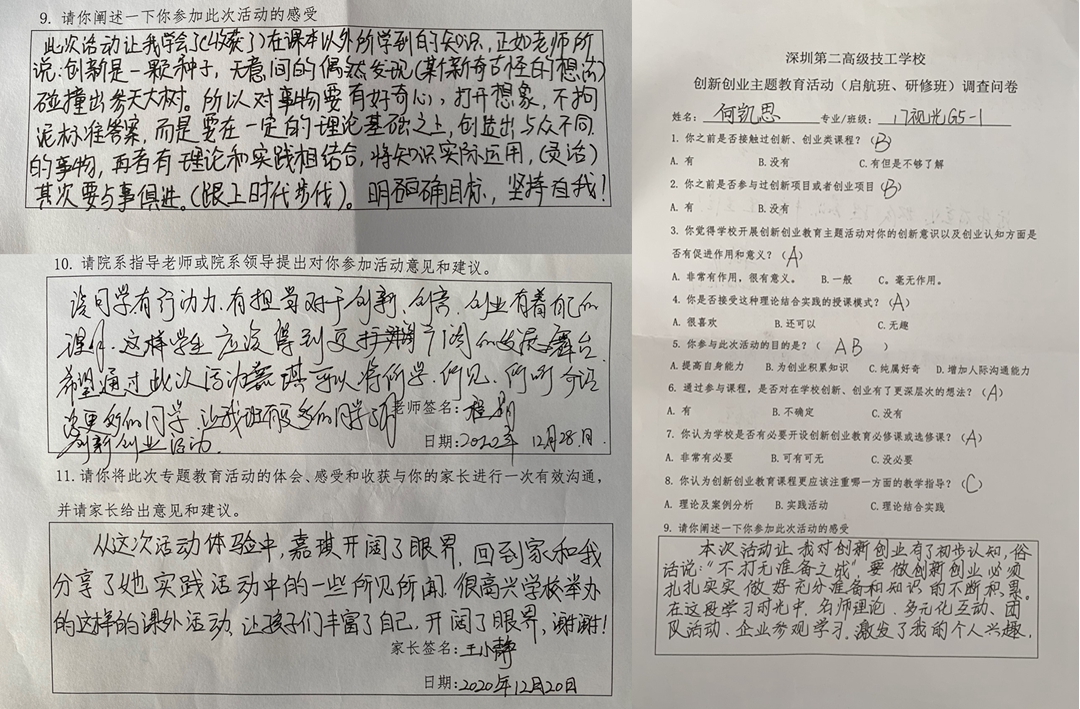 9. 请你阐述一下你参加此次活动的感受
此次活动让我学会了(收获了)在课本以外所学到的知识,正如老师所
说:创新是一颗种子,无意间的偶然发现(某新奇古怪的想法)
碰撞出参天大树。所以对事物要有好奇心,打开想象,不拘
泥标准答案,而是要在一定的理论基础之上,创造出与众不同
的事物,再者有理论和实践相结合,将知识实际运用,(灵活)
其次要与事俱进。(跟上时代步伐)。明确目标,坚持自我!
10. 请院系指导老师或院系领导提出对你参加活动意见和建议。
该同学有行动力,有担当对于创新、创意、创业有着自己的
理解,这样学生应该得到更广阔的发展舞台
希望通过此次活动嘉琪可以将所学、所见、所听介绍
给更多的同学,让我班有更多的同学了解
创新创业活动.
老师签名:
日期:2022年 12月28日.
11. 请你将此次专题教育活动的体会、感受和收获与你的家长进行一次有效沟通,
并请家长给出意见和建议。
从这次活动体验中,嘉琪开阔了眼界,回到家和我
分享了她实践活动中的一些所见所闻.很高兴学校举办
的这样的课外活动,让孩子们丰富了自己,开阔了眼界,谢谢!
家长签名:王小静
日期:2020年12月20日
深圳第二高级技工学校
创新创业主题教育活动(启航班、研修班)调查问卷
姓名: 何凯思 专业/班级: 17视光G5-1
1. 你之前是否接触过创新、创业类课程?(B)
A. 有 B.没有 C.有但是不够了解
2. 你之前是否参与过创新项目或者创业项目(B)
A. 有 B.没有
3. 你觉得学校开展创新创业教育主题活动对你的创新意识以及创业认知方面是
否有促进作用和意义?(A)
A. 非常有作用,很有意义。 B.一般 C。毫无作用。
4. 你是否接受这种理论结合实践的授课模式?(A)
A. 很喜欢 B.还可以 C.无趣
5. 你参与此次活动的目的是?( AB )
A.提高自身能力 B.为创业积累知识 C.纯属好奇 D.增加人际沟通能力
6. 通过参与课程,是否对在学校创新、创业有了更深层次的想法?(A)
A. 有 B.不确定 C.没有
7. 你认为学校是否有必要开设创新创业教育必修课或选修课?(A)
A. 非常有必要 B.可有可无 C.没必要
8. 你认为创新创业教育课程更应该注重哪一方面的教学指导?(C)
A. 理论及案例分析 B.实践活动 C.理论结合实践
9. 请你阐述一下你参加此次活动的感受
本次活动让我对创新创业有了初步认知,俗
话说:"不打无准备之战"要做创新创业必须
扎扎实实做好充分准备和知识的不断积累。
在这段学习时光中,名师理论、多元化互动、团
队活动、企业参观学习,激发了我的个人兴趣,